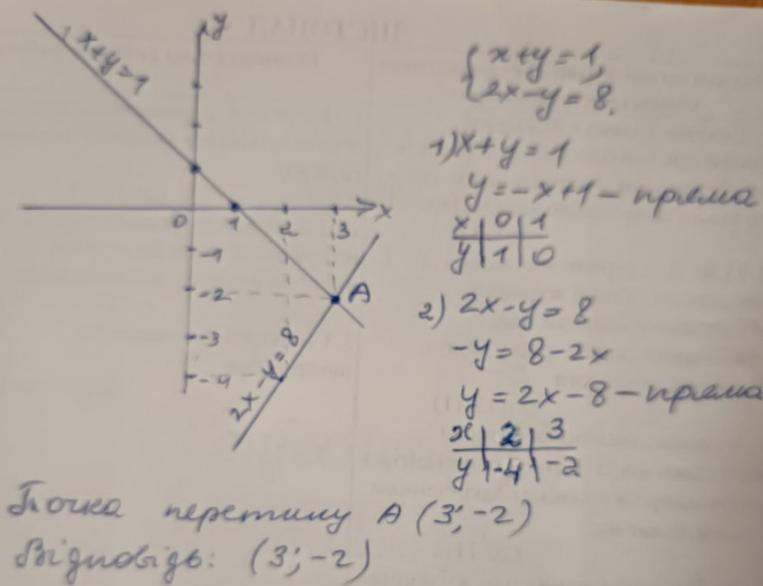 y
x+y=1
x
0 1 2 3
-1
-2
A
-3
-4
2x-y=8
{ x+y=1,
2x-y=8.
1) x+y=1
y=-x+1 - пряма
x | 0 | 1
y | 1 | 0
2) 2x-y=8
-y=8-2x
y=2x-8 - пряма
x | 2 | 3
y | -4 | -2
Точка перетину A (3;-2)
Відповідь: (3;-2)